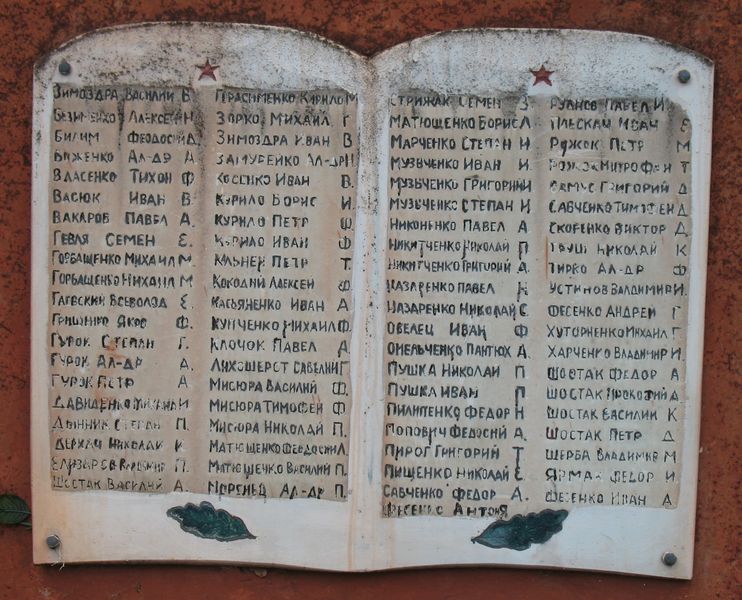 Зимоздра Василий В.
Безименко Алексей Н
Билим Феодосий Д.
Биженко Ал-др А.
Власенко Тихон Ф
Васюк Иван В.
Вакаров Павел А.
Гевля Семен Е.
Горбащенко Михаил М.
Горбащенко Михаил М
Гаевский Всеволод Е.
Грищенко Яков Ф.
Гурок Степан Г.
Гурок Ал-др А.
Гурок Петр А.
Давиденко Михаил И
Дынник Степан П.
Держач Николай И.
Елизаров П.
Шостак Василий А.
Герасименко Кирило М
Зорко Михаил Г
Зимоздра Иван В
Замурейко Ал-др Н
Косенко Иван В.
Курило Борис И.
Курило Петр Ф.
Курило Иван Ф
Кульней Петр Т.
Кокодий Алексей Ф.
Касьяненко Иван А.
Купченко Михаил Ф.
Клочок Павел А.
Лихошерст Савелий Г
Мисюра Василий Ф.
Мисюра Тимофей Ф
Мисюра Николай П.
Матющенко Феодосий Л.
Матющечко Василий П.
Моренец Ал-др П.
Стрижак Семен З.
Матющенко Борис Л
Марченко Степан И
Музыченко Иван И.
Музыченко Григорий И
Музыченко Степан И
Никоненко Павел А
Никитченко Николай П
Никитченко Григорий А.
Назаренко Павел Н
Назаренко Николай С.
Овелец Иван Ф
Омельченко Пантюх А.
Пушка Николай П
Пушка Иван П
Пилипенко Федор Н
Попович Федосий А.
Пирог Григорий Т
Пищенко Николай Е
Савченко Федор А.
Фесенко Антон Я
Руднов Павел И.
Плескач Иван Е
Рожок Петр М
Рожок Митрофан Т
Самус Григорий Д
Савченко Тимофей Д
Скоренко Виктор Д.
Туш Николай К
Тирко Ал-др Ф
Устинов Валдимир И.
Фесенко Андрей Г
Хуторненко Михаил Г
Харченко Владимир И.
Шостак Федор А
Шостак Прокопий А
Шостак Василий К
Шостак Петр Д
Шерба Владимир М
Ярмак Федор И
Фесенко Иван А